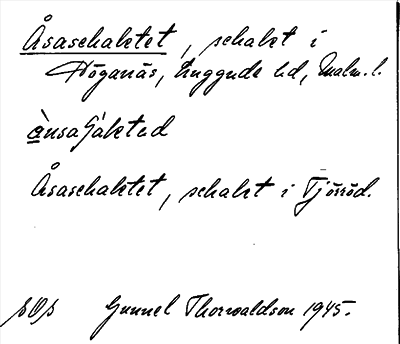 Åsaschaktet, schakt i
Höganäs, Luggude hd, Malm. l.
Åsaschaktet, schakt i Tjörröd.
Gunnel Thorvaldson 1945.